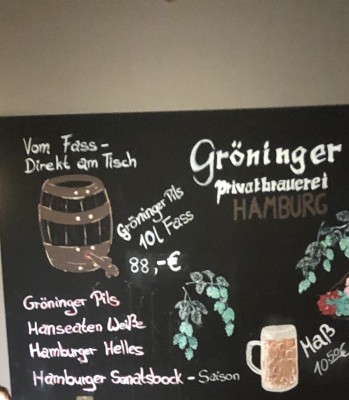 Vom Fass -
Direkt am Tisch
Gröninger Pils
10l Fass
88,-€
Gröninger
Privatbrauerei
HAMBURG
Gröninger Pils
Hanseaten Weiße
Hamburger Helles
Hamburger Senatsbock - Saison
Maß
10.50€